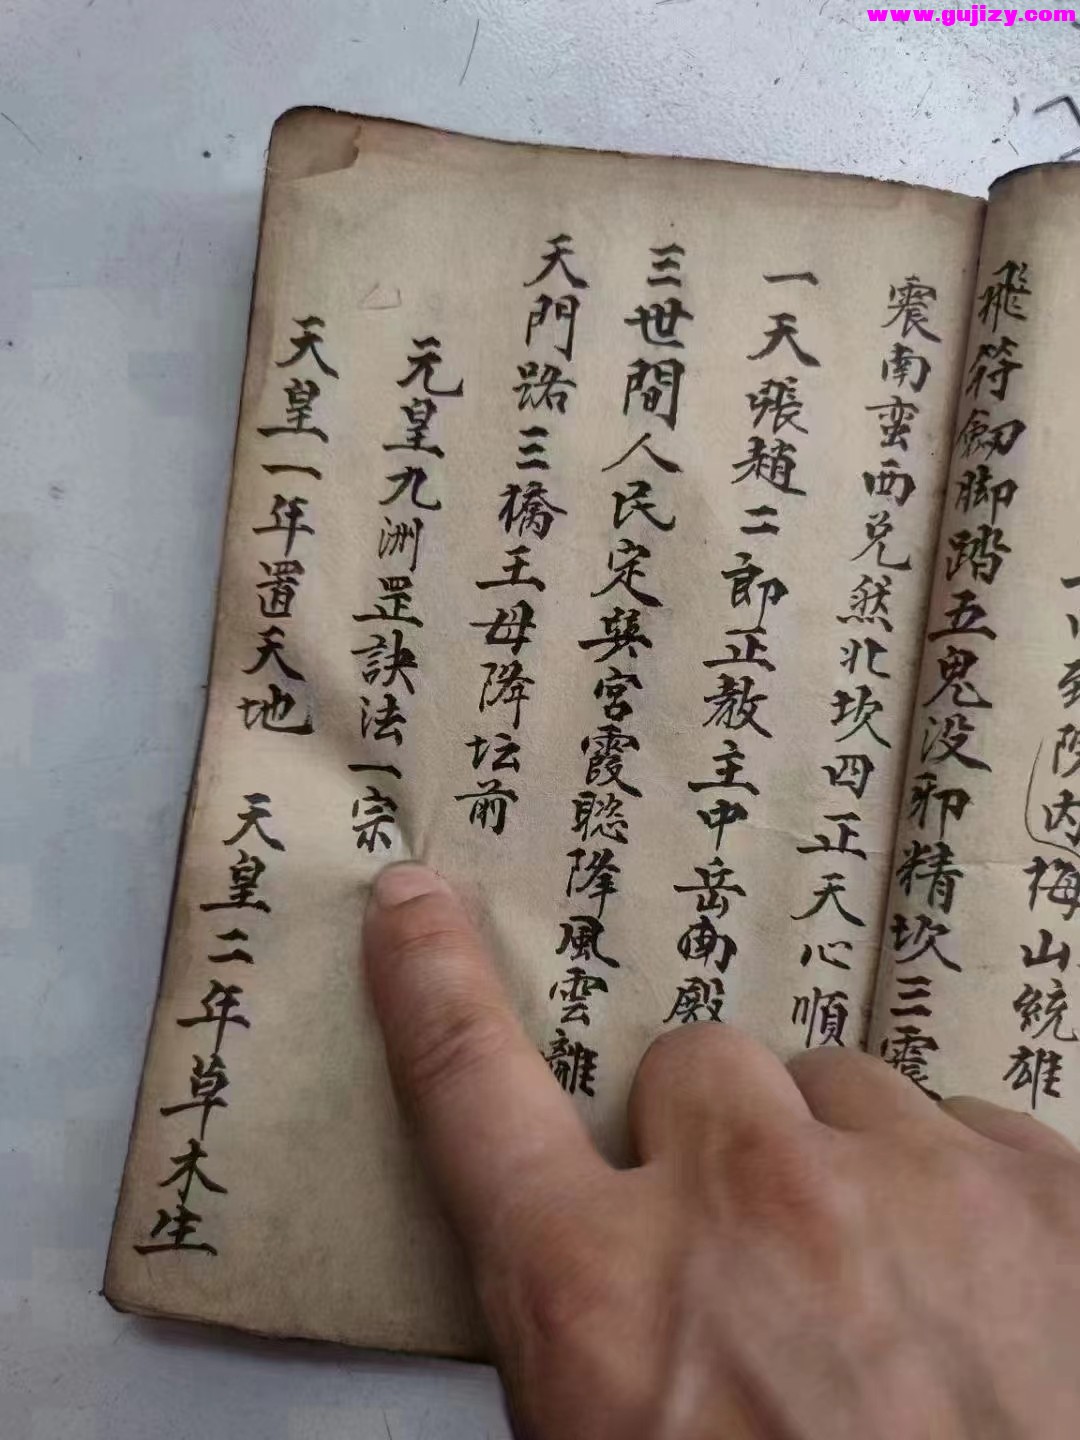 www.gujizy.com
到院内梅山統雄
飛符劔脚踏五鬼没邪精坎三震
震南蛮西兑然北坎四正天心順
一天張趙二郎正教主中岳南殿
三世間人民定巽宮霞聡降風雲離
天門路三橋王母降坛前
元皇九洲罡訣法一宗
天皇一年置天地 天皇二年草木生